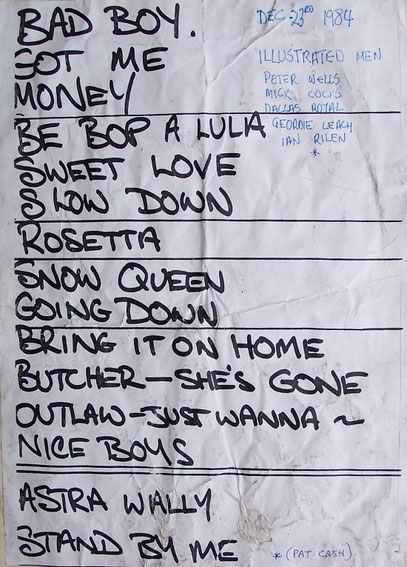 BAD BOY.
GOT ME
MONEY
BE BOP A LULA
SWEET LOVE
SLOW DOWN
ROSETTA
SNOW QUEEN
GOING DOWN
BRING IT ON HOME
BUTCHER - SHE'S GONE
OUTLAW - JUST WANNA ~
NICE BOYS
ASTRA WALLY
STAND BY ME
DEC. 23RD 1984
ILLUSTRATED MEN
PETER WELLS
MICK COCKS
DALLAS ROYAL
GEORDIE LEACH
IAN RILEN
*
* (PAT CASH)